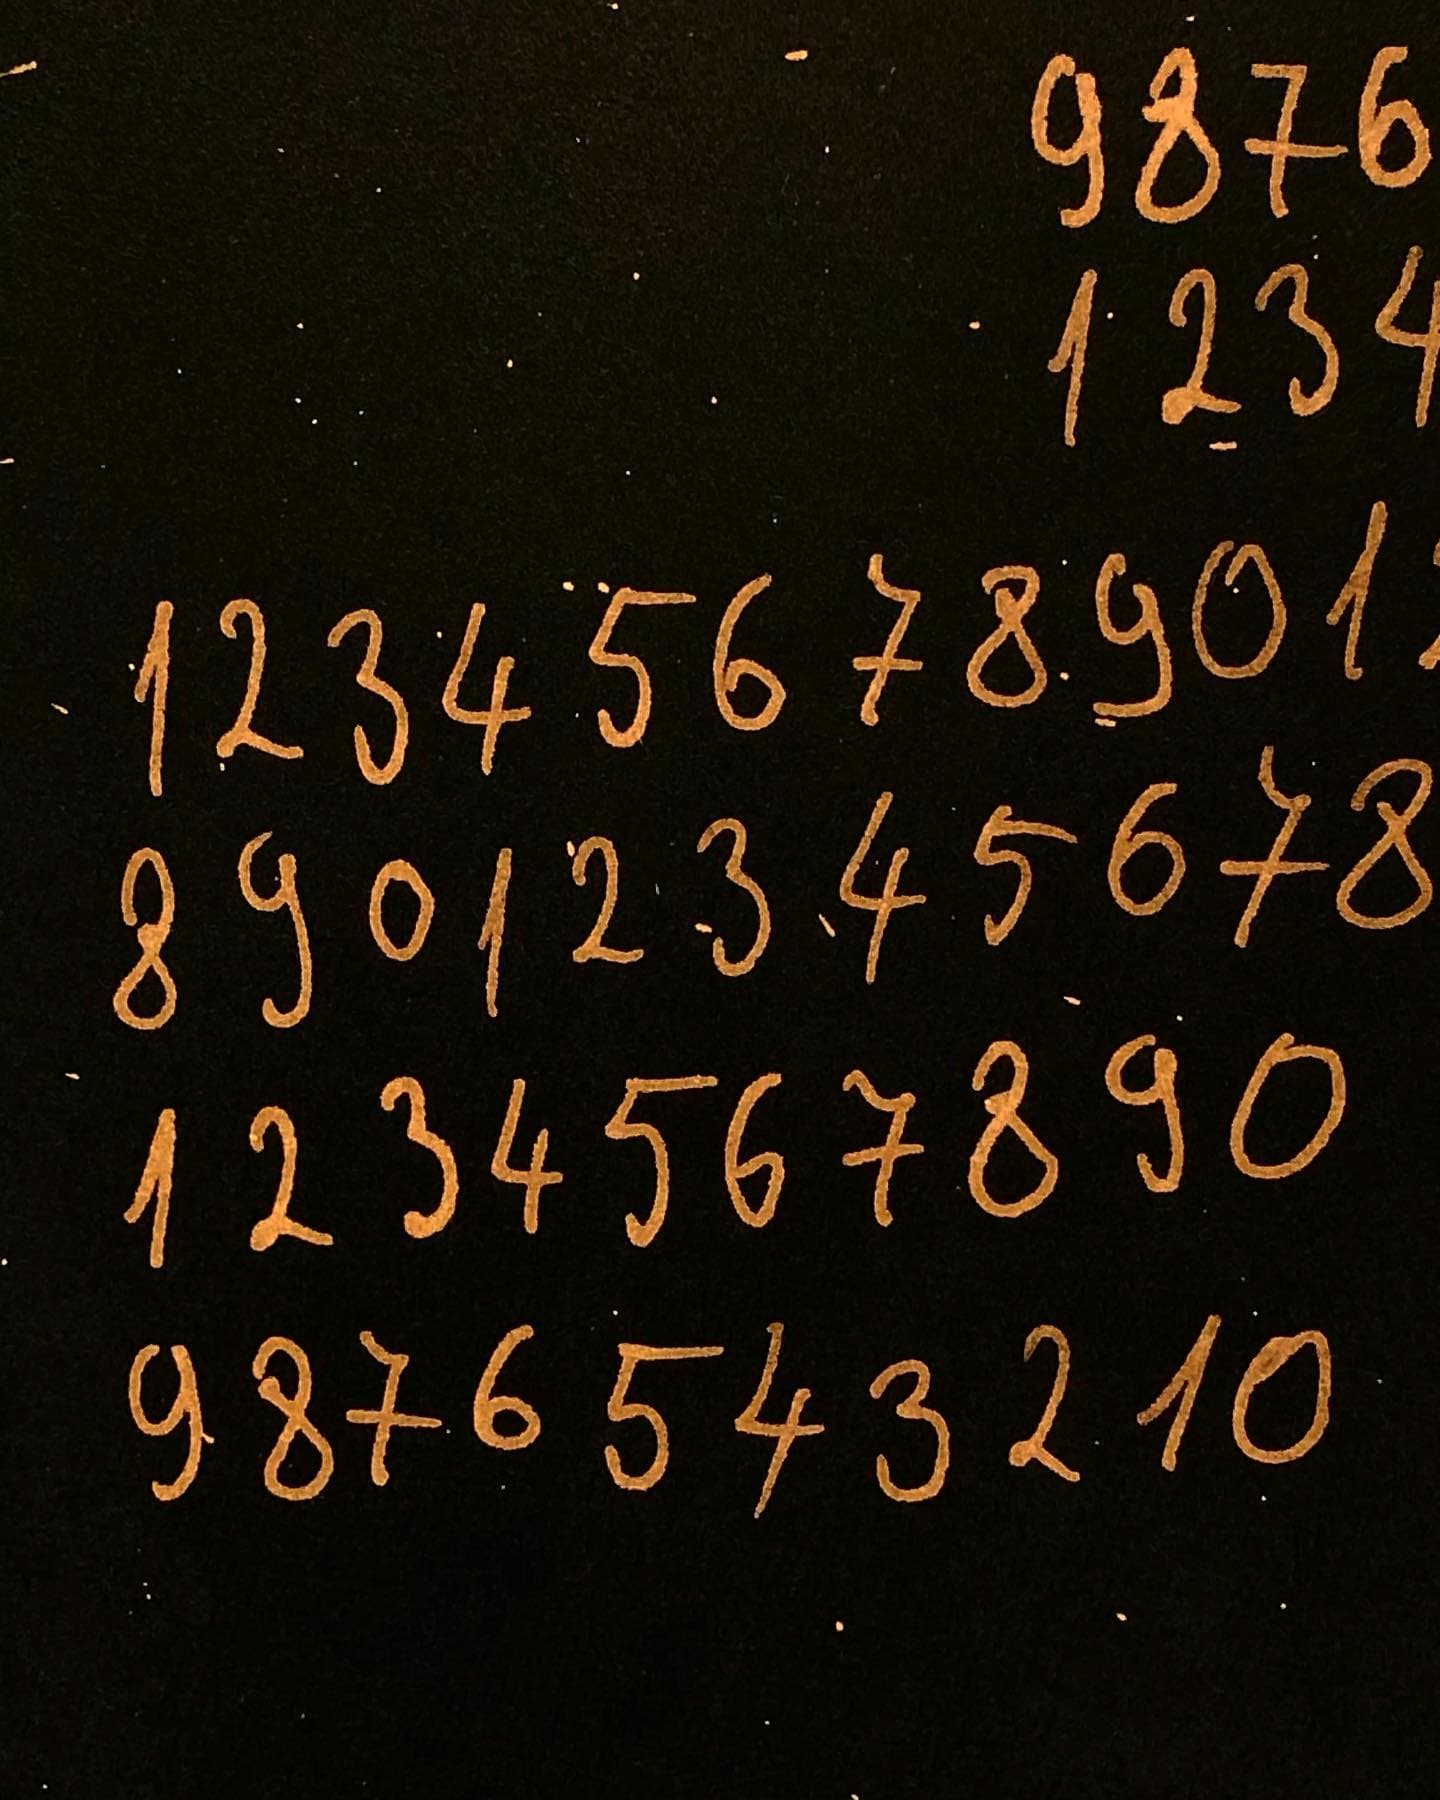 9 8 7 6
1 2 3 4
1 2 3 4 5 6 7 8 9 0 1
8 9 0 1 2 3 4 5 6 7 8
1 2 3 4 5 6 7 8 9 0
9 8 7 6 5 4 3 2 1 0